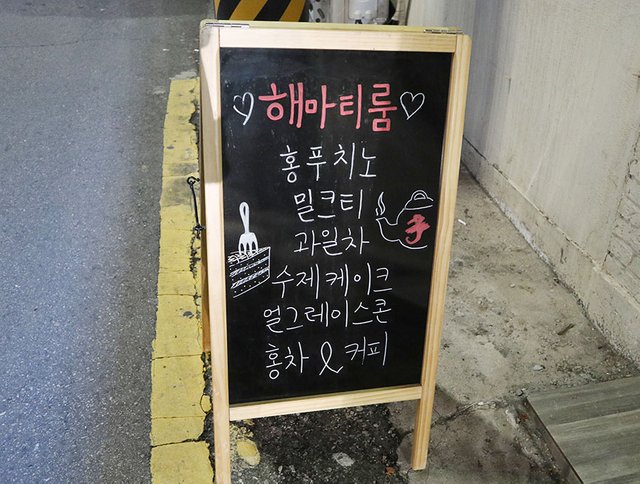 해마티룸
홍푸치노
밀크티
과일차
手
수제케이크
얼그레이스콘
홍차 & 커피